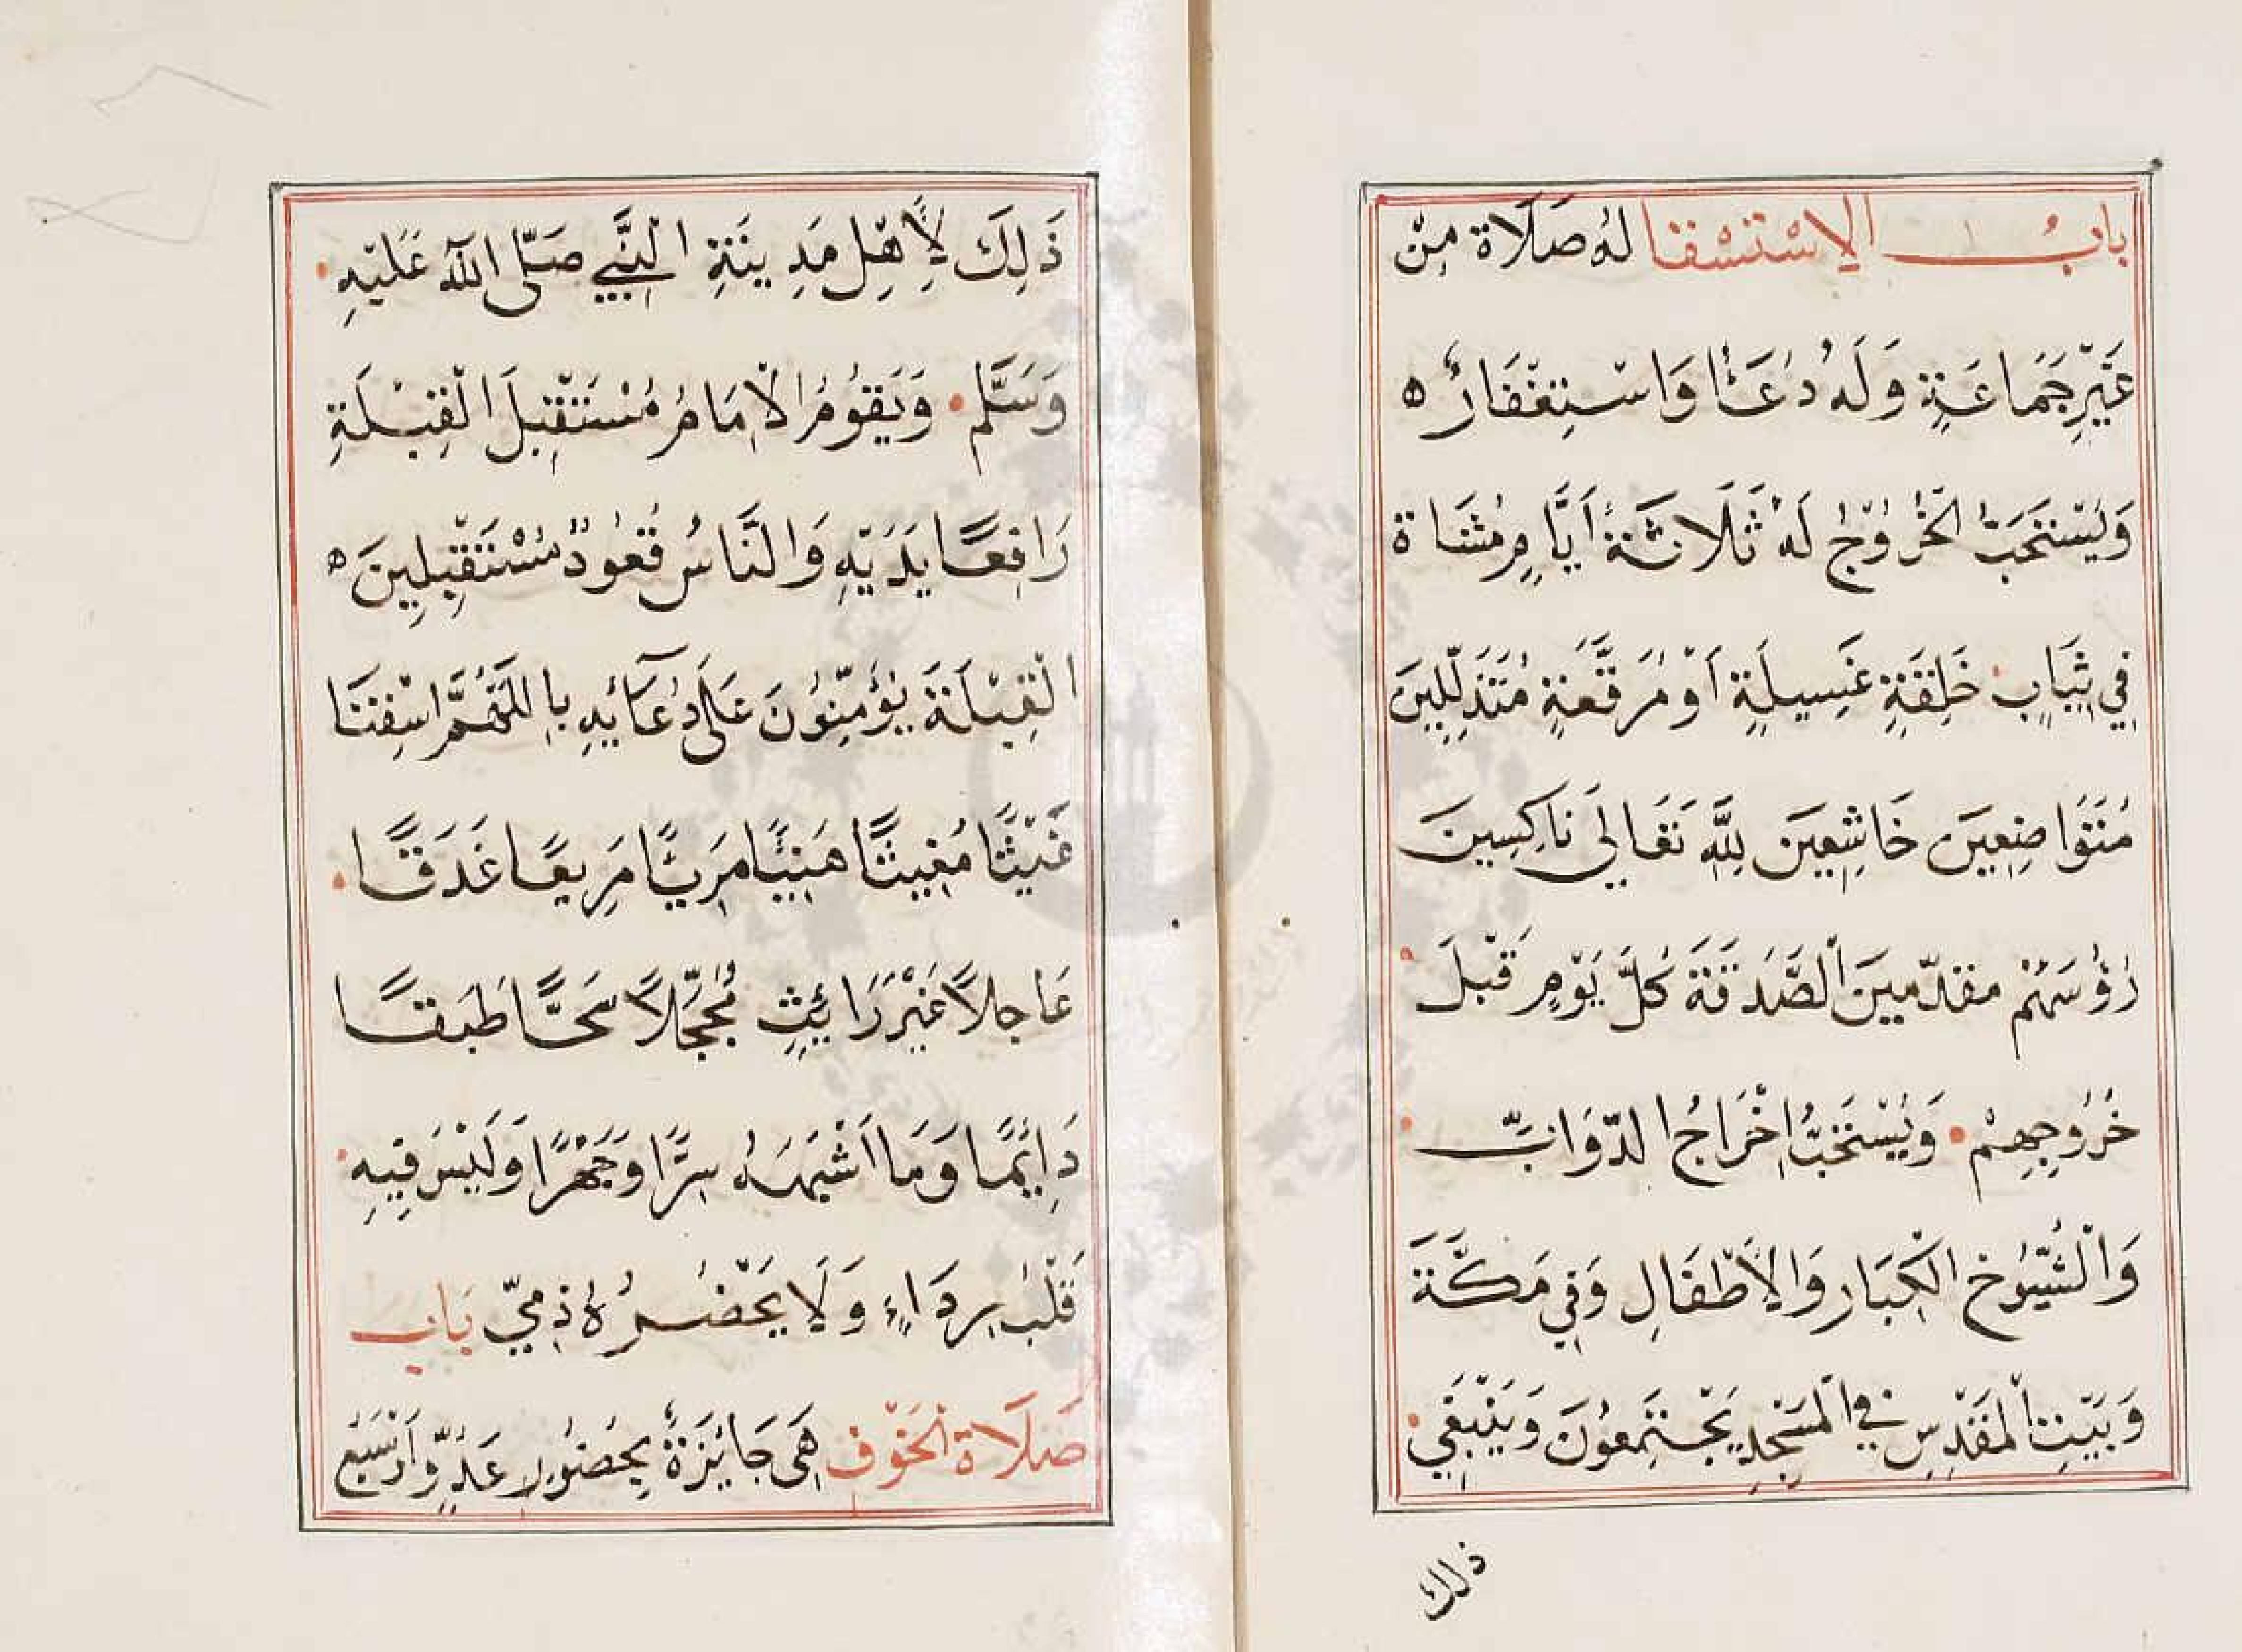 بابُ الاِسْتسْقا لهُ صَلَاة مِنْ
غَيْرِ جَمَاعَةٍ وَلَهُ دُعَاْ وَاسْتِغْفَارٌ ه
وَيُسْتَحَبُّ الخُرُوْجُ لَهُ ثَلَاثَةُ اَيَّامٍ مُشَاة
فِي ثِيَابٍ خَلِقَةٍ غَسِيلَةٍ اَوْ مُرَقَّعَةٍ مُتَذَلِّلِينَ
مُتَوَاضِعِينَ خَاشِعِينَ لِلَّهِ تَعَالِي نَاكِسِينَ
رُؤُسَهُمْ مقدّمينَ الْصَّدَقَةَ كُلَّ يَوْمٍ قَبْلَ
خُرُوجِهِمْ وَيُسْتَحَبُّ اِخْرَاجُ الدّوَابِّ
وَالْشُّيُوْخِ الْكِبَارِ وَالاَطْفَالِ وَفِي مَكَّةَ
وَبَيْتِ الْمَقْدِسِ فِي الْمَسْجِدِ يَجْتَمِعُوْنَ وَيَنْبَغِي
ذلك
ذَلِكَ لِاَهْلِ مَدِينَةِ النَّبِي صَلّى اللّهُ عَلَيْهِ
وَسَلَّم وَيَقُوْمُ الْاِمَامُ مُسْتَقْبِلَ الْقِبْلَةِ
رَافِعًا يَدَيْهِ وَالنَّاسُ قُعُوْدٌ مُسْتَقْبِلِينَ ه
الْقِبْلَةَ يُؤَمِّنُوْنَ عَلَى دُعَآئِهِ بِاللَّهُمَّ اسْقِنَا
غَيْثًا مُغِيثًا هَنِيْئًا مَرِيًّا مَرِيعًا غَدَقًا
عَاجِلاً غَيْرَ رَائِثٍ مُجَجّلاً سَحًّا طَبَقًا
دَائِمًا وَمَا اَشْبَهَهُ سِرًّا وَجَهْرًا وَلَيْسَ فِيهِ
قَلْبُ رِدَاءٍ وَلَا يَحْضُرُهُ ذِمِّيّ بَاب
صَلَاة الْخَوْف هِىَ جَائِزَةٌ بِحُضُوْرِ عَدُوٍّ اَوْ سَبُعٍ